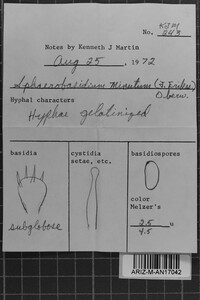 KJM
No.
Notes by Kenneth J Martin
Aug 25, 1972
Sphaerobasidium minutum (J. Eriks.)
Oberw.
Hyphal characters
Hyphae gelatinized
basidia
cystidia
setae, etc.
basidiospores
subglobose
color
Melzer's
2.5
4.5
u
ARIZ-M-AN17042